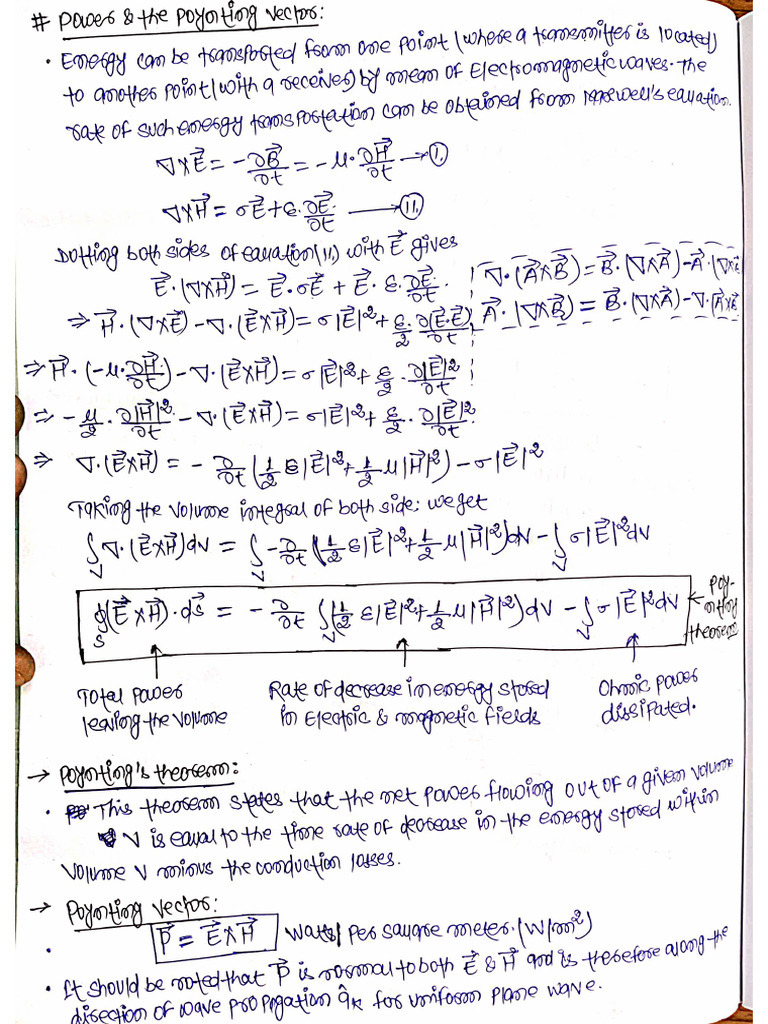 # Power & the Poynting Vector:
• Energy can be transported from one point (where a transmitter is located)
to another point (with a receiver) by mean of Electromagnetic waves. the
rate of such energy transportation can be obtained from Maxwell's equation.
∇×E⃗ = -∂B⃗/∂t = -μ·∂H⃗/∂t → (I.)
∇×H⃗ = σE⃗ + ε·∂E⃗/∂t → (II.)
Dotting both sides of equation (II) with E⃗ gives
E⃗·(∇×H⃗) = E⃗·σE⃗ + E⃗·ε∂E⃗/∂t.
∇·(A⃗×B⃗) = B⃗·(∇×A⃗) - A⃗·(∇×B⃗
A⃗·(∇×B⃗) = B⃗·(∇×A⃗) - ∇·(A⃗×B⃗
⇒ H⃗·(∇×E⃗) - ∇·(E⃗×H⃗) = σ|E⃗|² + ε/2·∂(E⃗·E⃗)/∂t
⇒ H⃗·(-μ·∂H⃗/∂t) - ∇·(E⃗×H⃗) = σ|E⃗|² + ε/2·∂|E⃗|²/∂t
⇒ -μ/2·∂|H⃗|²/∂t - ∇·(E⃗×H⃗) = σ|E⃗|² + ε/2·∂|E⃗|²/∂t.
⇒ ∇·(E⃗×H⃗) = -∂/∂t(1/2 ε|E⃗|² + 1/2 μ|H⃗|²) - σ|E⃗|²
Taking the volume integral of both side; we get
∫_V ∇·(E⃗×H⃗)dv = ∫_V -∂/∂t(1/2 ε|E⃗|² + 1/2 μ|H⃗|²)dv - ∫_V σ|E⃗|²dv
∮_S (E⃗×H⃗)·ds⃗ = -∂/∂t ∫_V (1/2 ε|E⃗|² + 1/2 μ|H⃗|²)dv - ∫_V σ|E⃗|²dv
← Poy-
nting
theorem
Total power
leaving the volume
Rate of decrease in energy stored
in Electric & magnetic fields
Ohmic power
dissipated.
→ Poynting's theorem:
• This theorem states that the net power flowing out of a given volume
V is equal to the time rate of decrease in the energy stored within
volume V minus the conduction losses.
→ Poynting vector:
• P⃗ = E⃗×H⃗ Watts/ Per square meter. (W/m²)
• It should be noted that P⃗ is normal to both E⃗ & H⃗ and is therefore along the
direction of wave propagation âk for uniform plane wave.